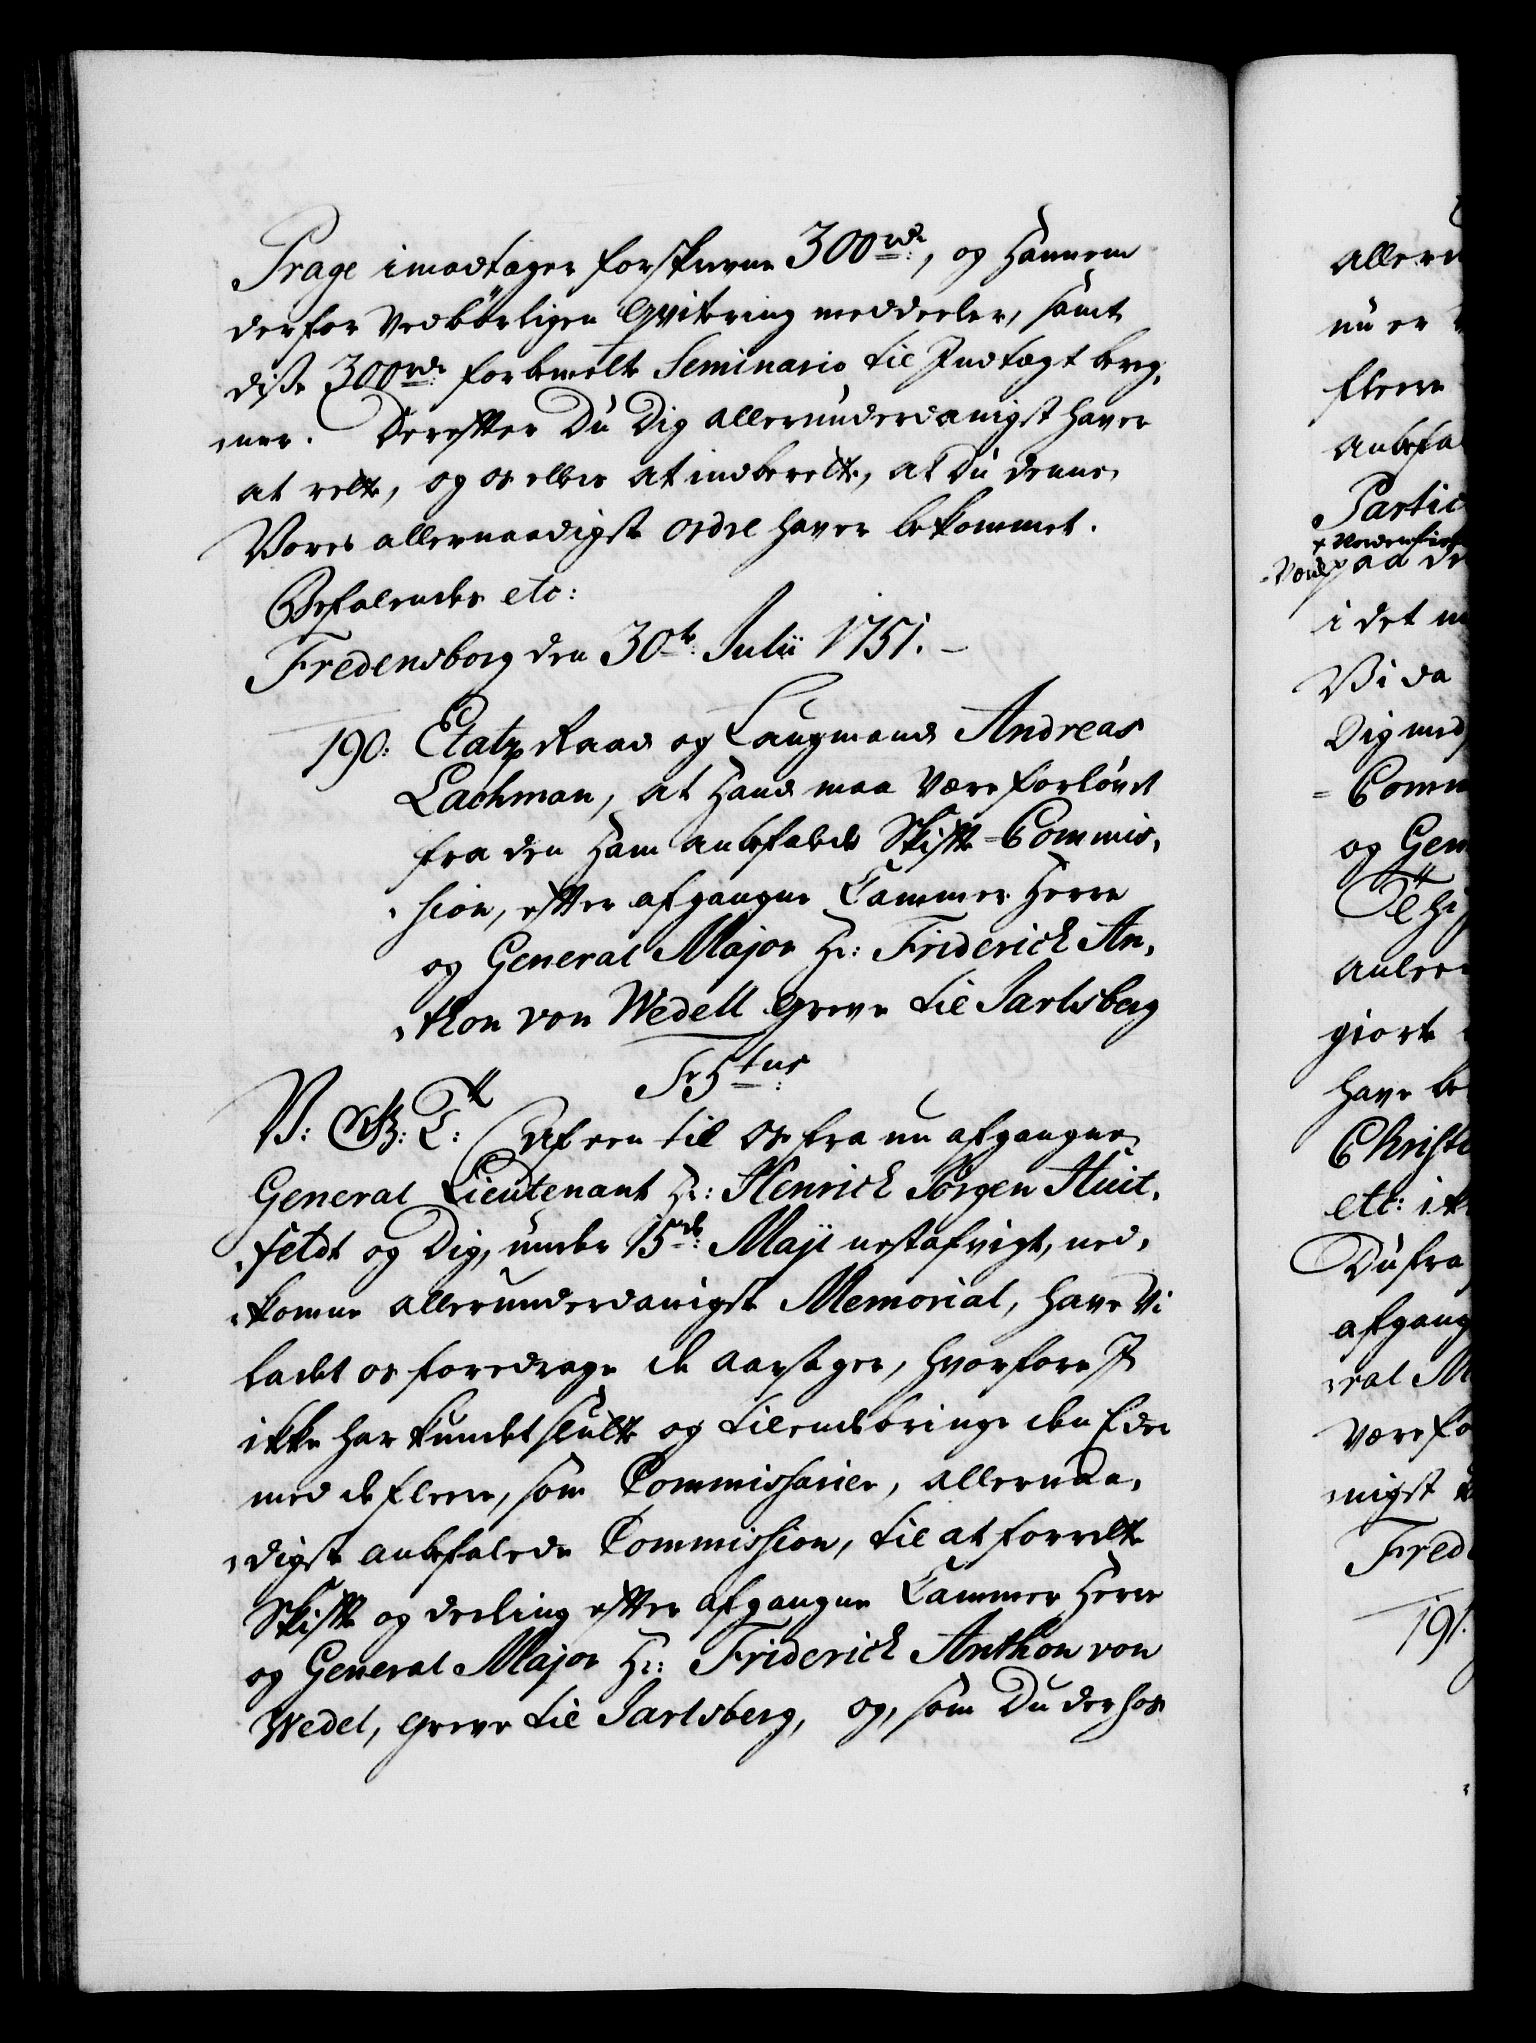 Prage imodtager forskrevne 300rd:, og Hannem
derfor vedbørligen Qvitering meddeeler, samt
disse 300rd: forbemelte Seminario til Indtægt bereg,
,ner. Derefter Du Dig allerunderdanigst haver
at rette, og os ellers at indberette, at Du denne
Vores allernaadigste ordre haver bekommet.
Befalendes etc:
Fredensborg den 30te: Julii 1751. –
190: Etatz Raad og Laugmand Andreas
Lachman, at Hand maa være forløvet
fra den Ham anbefalede Skifte-Commis,
,sion, efter afgangne Cammer Herre
og General Major Hr: Friderich An,
,thon von Wedell Greve til Jarlsberg
Fr 5tus
V: G: T: Af een til os fra nu afgangne
General Lieutenant Hr: Henrich Jørgen Huit,
,feldt og Dig, under 15de: Maji nestafvigt, ned,
,komne allerunderdanigste Memorial, have Vi
ladet os foredrage de Aarsager, hvorfore I
ikke har kundet slutte og tilendebringe den Eder
med de fleere, som Commissarier, allernaa,
,digst anbefalede Commission, til at forrette
Skifte og deeling efter afgangne Cammer Herre
og General Major Hr: Friderich Anthon von
Wedel, Greve til Jarlsberg, og, som Du derhos
nu er
fleere
Partic
paa de
i det
Vi da
Dig med
= Comm
og Gen
giort
have be
Christi
etc: ik
Du fra
afgang
,ral M
være fo
,nigst
Frede
191.